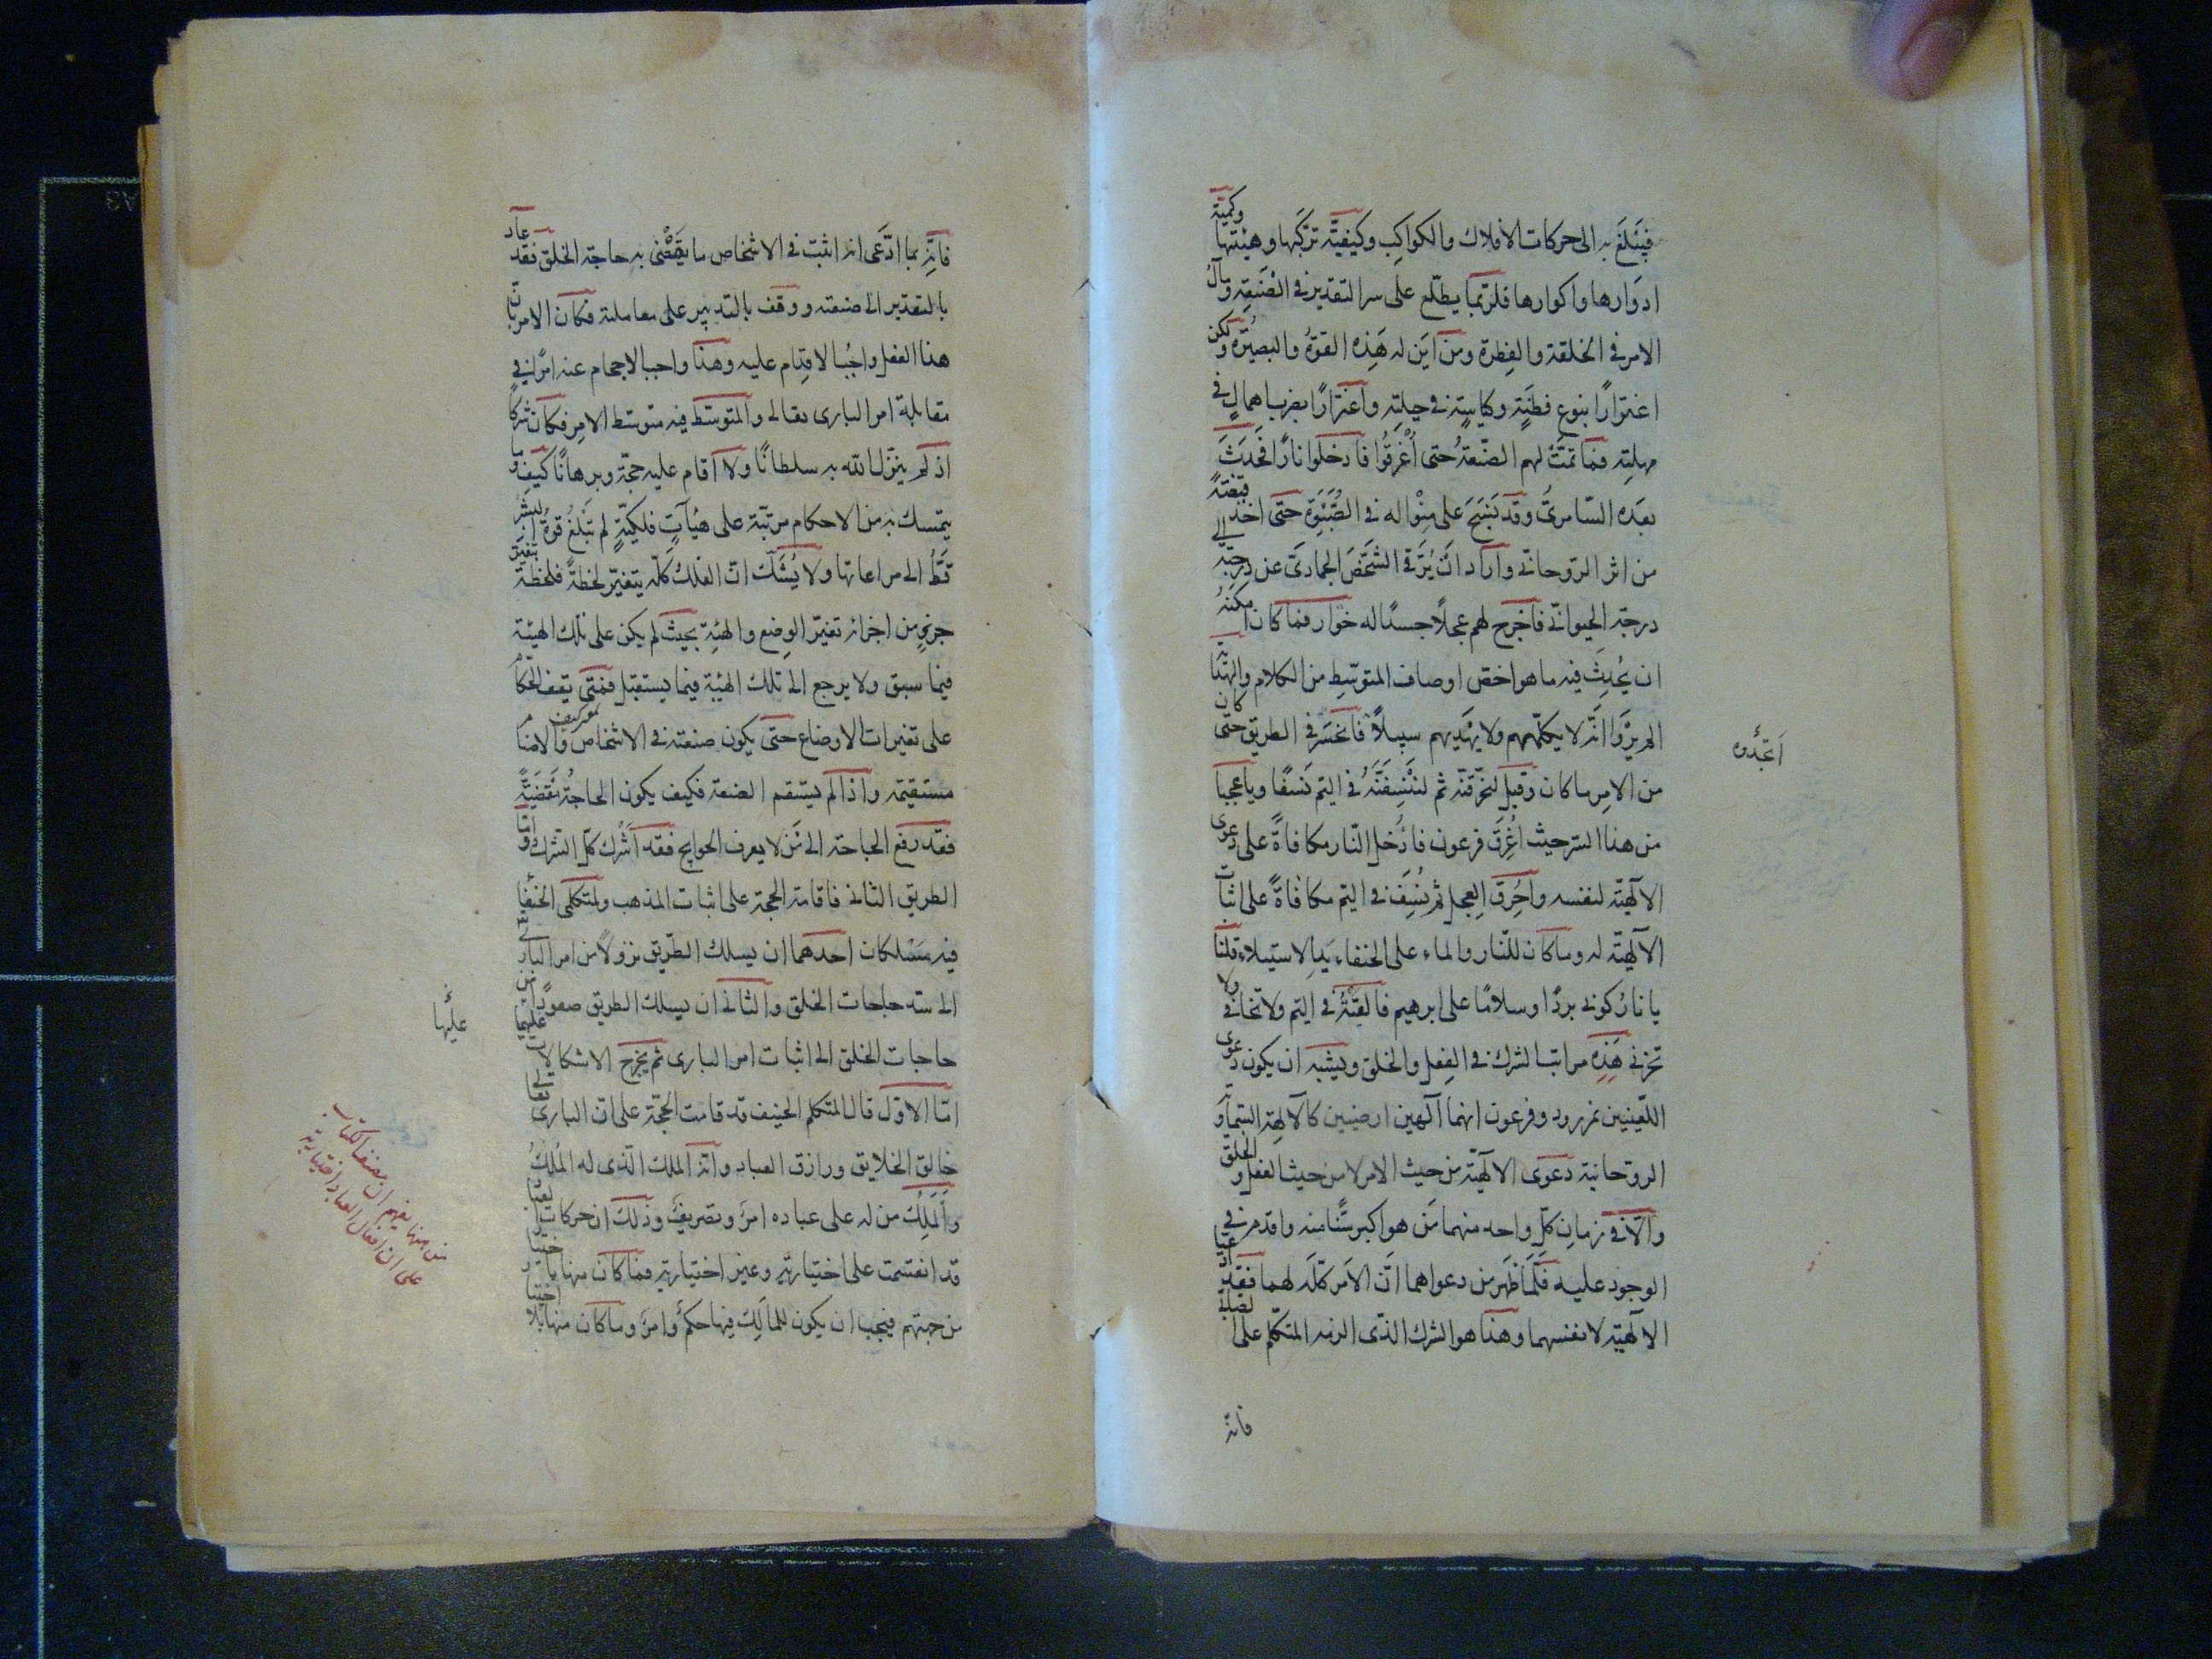 فيبلغ به الى حركات الافلاك والكواكب وكيفية تركبها وهيئتها وكمية
ادوارها واكوارها فلربما يطلع على سر التقدير في الصنعة ومآل
الامر في الخلقة والفطرة ومن اين له هذه القوة والبصيرة ولكن
اغترارًا بنوع فطنة وكياسة في جبلته واغترارًا بضرب اهمال في
مهلته فما تمت لهم الصنعة حتى أُغْرِقُوا فأدخلوا نارًا فحدث
بعده السامري وقد نسج على منواله في الصبوة حتى اخذ قبضة
من اثر الروحاني واراد ان يرقى الشخص الجمادي عن درجته الى
درجة الحيواني فاخرج لهم عجلًا جسدًا له خوار فما كان امكنه
ان يحدث فيه ما هو اخص اوصاف المتوسط من الكلام والهداية
الم يروا انه لا يكلمهم ولا يهديهم سبيلًا فانحسر في الطريق حتى كان
اتخذوه
من الامر ما كان وقيل لنحرقنه ثم لننسفنه في اليم نسفًا ويا عجبا
من هذا السر حيث أُغرق فرعون فأُدخل النار مكافاةً على دعوى
الالٓهية لنفسه واحرق العجل ثم نسف في اليم مكافاةً على اثبات
الالٓهية له وما كان للنار والماء على الحنفاء يد الاستيلاء قلنا
يا نار كوني بردًا وسلامًا على ابرهيم فالقيه في اليم ولا تخافي ولا
تحزني هذه مراتب الشرك في الفعل والخلق ويشبه ان يكون دعوى
اللعينين نمرود وفرعون انهما الٓهين ارضيين كالالٓهة السماوية
الروحانية دعوى الالٓهية من حيث الامر لا من حيث الفعل والخلق
والا في زمان كل واحد منهما من هو اكبر سنًا منه واقدم في
الوجود عليه فلما ظهر من دعواهما ان الامر كله لهما فقد ادعيا
الالٓهية لانفسهما وهذا هو الشرك الذي الزمه المتكلم على الصابي
فانه
فانه بما ادعى انه اثبت في الاشخاص ما يقضى به حاجة الخلق فقد عاد
بالتقدير الى صنعته ووقف بالتدبير على معاملته فكان الامر بان
هذا الفعل واجب الاقدام عليه وهذا واجب الاحجام عنه امرًا في
مقابلة امر الباري تعالى والمتوسط فيه متوسط الامر فكان شركا
اذ لم ينزل الله به سلطانًا ولا اقام عليه حجة وبرهانًا كيف وما
يتمسك به من الاحكام مرتبة على هيآت فلكية لم تبلغ قوة البشر
قط الى مراعاتها ولا يشك ان الفلك كله يتغير لحظة فلحظة بتغير
جزءٍ من اجزائه تغير الوضع والهيئة بحيث لم يكن على تلك الهيئة
فيما سبق ولا يرجع الى تلك الهيئة فيما يستقبل فمتى يقف الحكم
على تغيرات الاوضاع حتى يكون صنعته في الاشخاص والاصنام
مستقيمة واذا لم يستقم الصنعة فكيف يكون الحاجة مقضية
فقد رفع الحاجة الى من لا يعرف الحوايج فقد اشرك كل الشرك واما
الطريق الثاني فاقامة الحجة على اثبات المذهب ولمتكلمي الحنفا
فيه مسلكان احدهما ان يسلك الطريق نزولًا من امر الباري
الى سد حاجات الخلق والثاني ان يسلك الطريق صعودًا من
حاجات الخلق الى اثبات امر الباري ثم يخرج الاشكالات عليهما
عليها
اما الاول قال المتكلم الحنيف قد قامت الحجة على ان الباري تعالى
خالق الخلايق ورازق العباد وانه الملك الذي له الملك
والملك من له على عباده امر وتصريف وذلك ان حركات العباد
قد انقسمت على اختيارية وغير اختيارية فما كان منها باختيار
من جهتهم فيجب ان يكون للمالك فيها حكم وامر وما كان منها بلا اختيار
من هنا يفهم ان مصنف الكتاب
على ان افعال العباد اختيارية